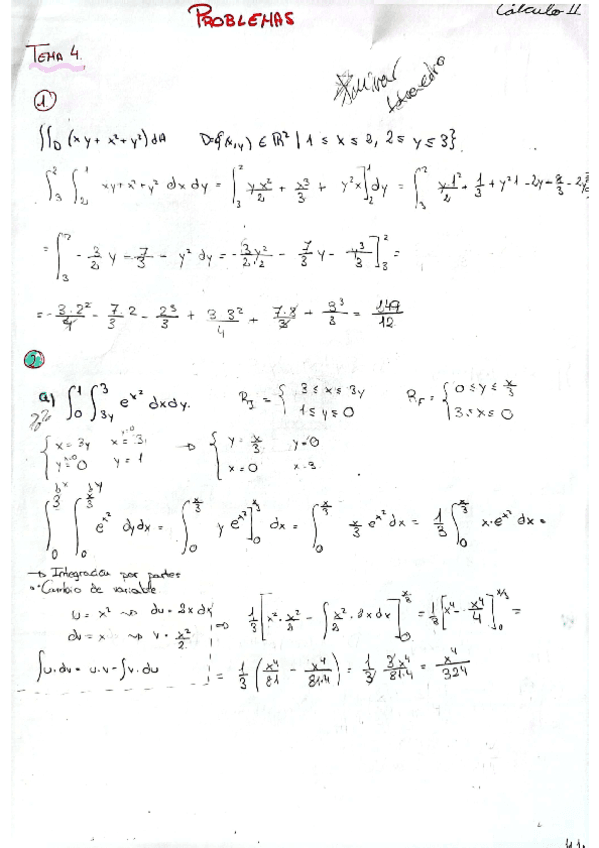 PROBLEMAS
Cálculo II
TEMA 4.
1
∬D (xy + x² + y²) dA D={(x,y) ∈ ℝ² | 1 ≤ x ≤ 2, 2 ≤ y ≤ 3}
∫₃² ∫₂¹ xy + x² + y² dx dy = ∫₃² yx²/2 + x³/3 + y²x]₂¹ dy = ∫₃² y1²/2 + 1/3 + y²1 - 2y - 8/3 - 2y²
= ∫₃² - 3/2 y - 7/3 - y² dy = - 3/2 y²/2 - 7/3 y - y³/3]₃² =
= - 3·2²/4 - 7/3·2 - 2³/3 + 3·3²/4 + 7·3/3 + 3³/3 = 149/12
2
a) ∫₀¹ ∫₃y³ e^x² dxdy. R_I = { 3 ≤ x ≤ 3y R_F = { 0 ≤ y ≤ x/3
1 ≤ y ≤ 0 3 ≤ x ≤ 0
{ x = 3y x = 3 → { y = x/3 y=0
y = 0 y = 1 x = 0 x=3
∫₀³ ∫₀^x/3 e^x² dy dx = ∫₀^x/3 y e^x²]₀^x/3 dx = ∫₀^x/3 x/3 e^x² dx = 1/3 ∫₀^x/3 x·e^x² dx =
→ Integración por partes
Cambio de variable
u = x² ⇝ du = 2x dx ⇒ 1/3 [x²·x²/2 - ∫ x²/2 · 2x dx]₀^x/3 = 1/3 [x⁴ - x⁴/4]₀^x/3 =
dv = x ⇝ v = x²/2
∫u·dv = u·v - ∫v·du
= 1/3 (x⁴/81 - x⁴/81·4) = 1/3 3x⁴/81·4 = x⁴/324